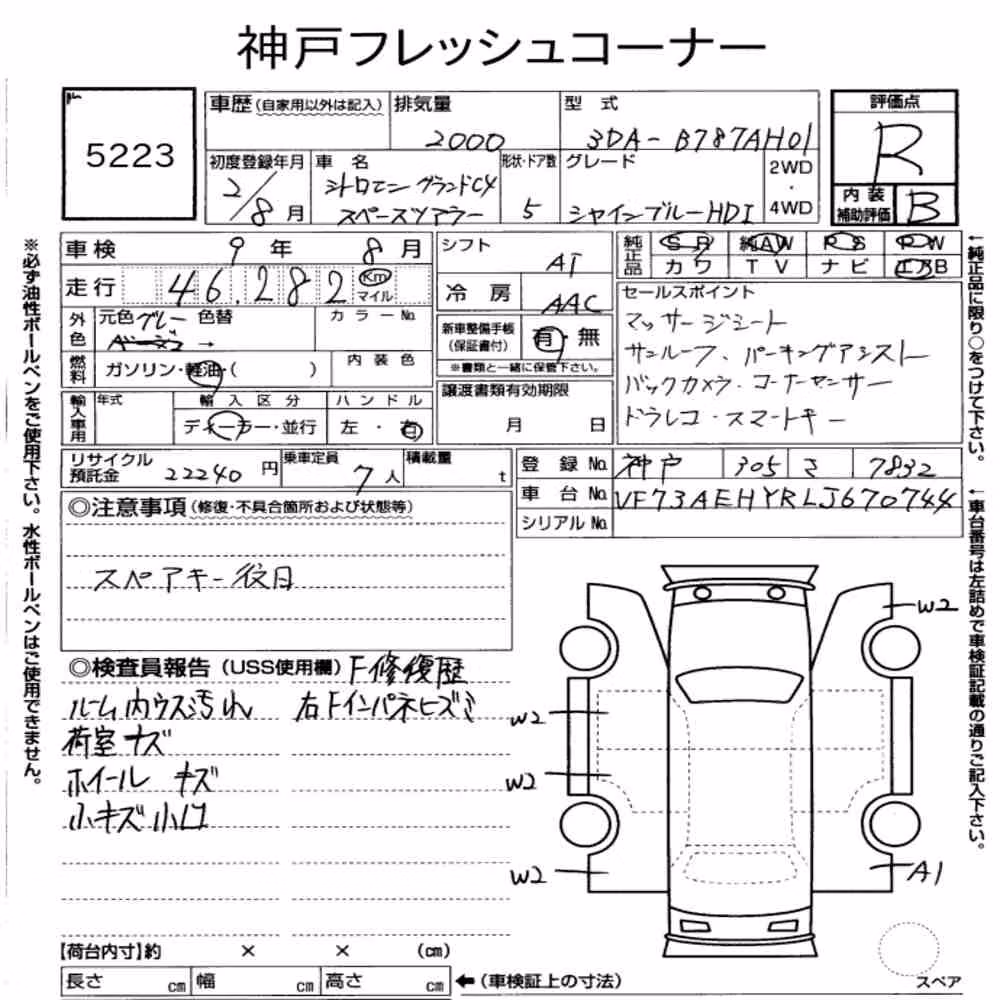 神戸フレッシュコーナー
5223
車歴 (自家用以外は記入) 排気量 型式 評価点
2000 3DA-B787AH01 R
初度登録年月 車名 形状・ドア数 グレード 2WD ・ 4WD
2/8月 シトロエン グランドC4 スペースツアラー 5 シャインブルーHDI
内装補助評価 B
車検 9年 8月
走行 46,282 Km マイル
外色 元色 グレー 色替 カラーNo.
→
燃料 ガソリン・軽油・( ) 内装色
輸入車用 年式 輸入区分 ハンドル
ディーラー・並行 左・右
シフト AT
冷房 AAC
新車整備手帳 (保証書付) 有・無
※書類と一緒に保管下さい。
譲渡書類有効期限
月 日
純正品 SR 純AW PS PW
カワ TV ナビ エアB
セールスポイント
マッサージシート
サンルーフ、パーキングアシスト
バックカメラ・コーナーセンサー
ドラレコ・スマートキー
リサイクル預託金 22240円 乗車定員 7人 積載量 t
登録No. 神戸 305 さ 7832
車台No. VF73AEHYRLJ670744
シリアルNo.
◎注意事項 (修復・不具合箇所および状態等)
スペアキー後日
◎検査員報告 (USS使用欄) F修復歴
ルーム内ウス汚れ 右Fインパネヒズミ
荷室キズ
ホイールキズ
小キズ小凹
W2
W2
W2
W2
A1
スペア
【荷台内寸】約 × × (cm)
長さ cm 幅 cm 高さ cm ←(車検証上の寸法)
※必ず油性ボールペンをご使用下さい。水性ボールペンはご使用できません。
←純正品に限り○をつけて下さい。
←車台番号は左詰めで車検証記載の通りご記入下さい。